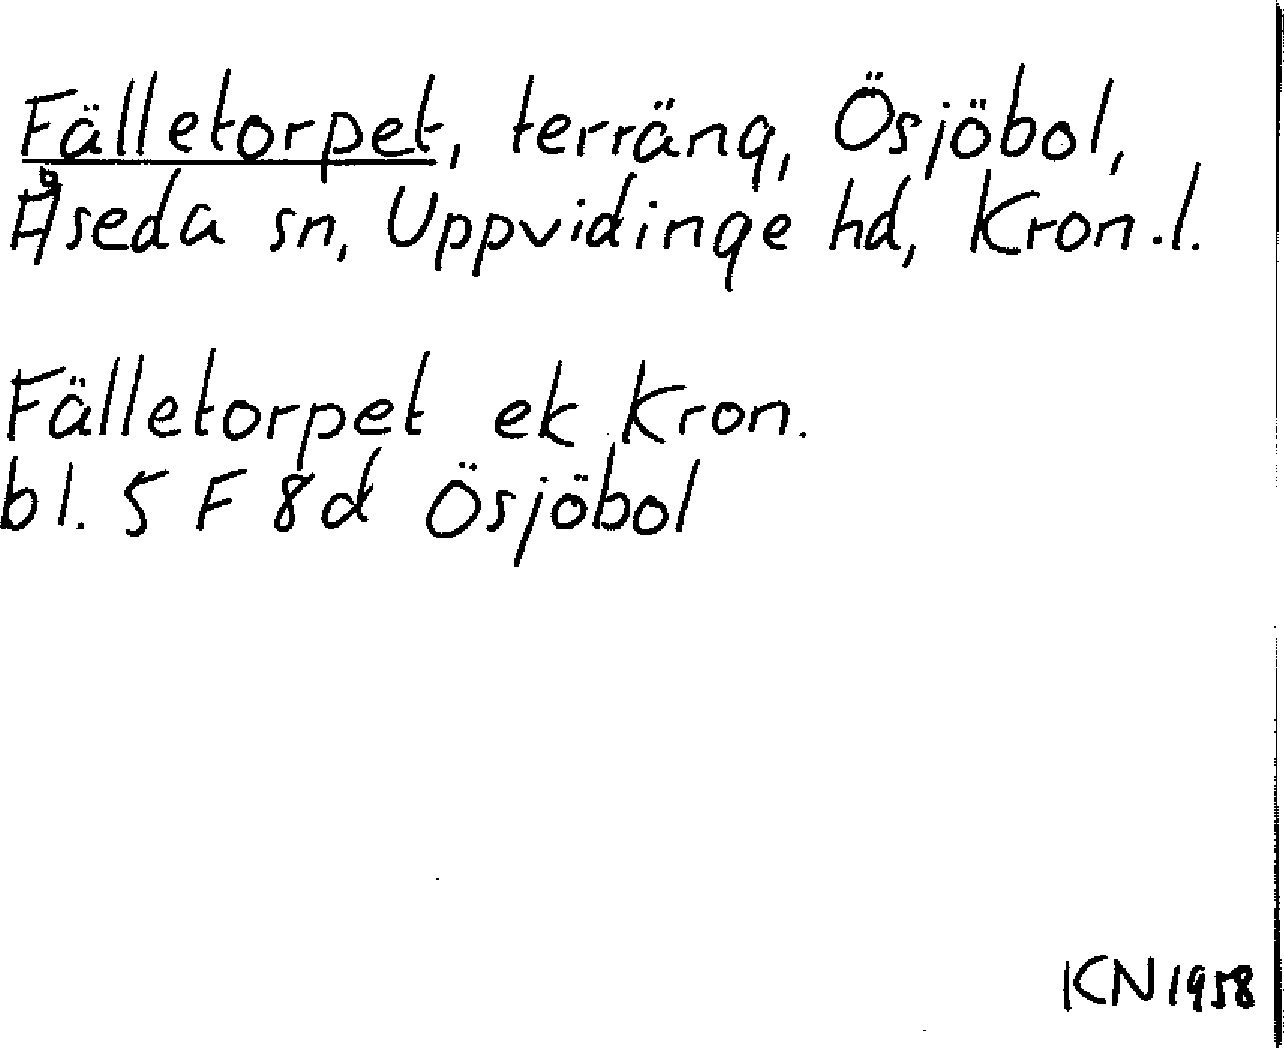 Fälletorpet, terräng, Ösjöbol,
Åseda sn, Uppvidinge hd, Kron.l.
Fälletorpet ek Kron.
bl. 5 F 8d Ösjöbol
KN 1958